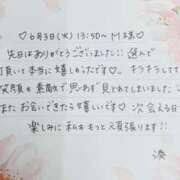 ♡6月3日(火) 13:50~ M様♡
先日はありがとうございました!! 選んで
頂いて本当に嬉しかったです♡。キラキラしてて
笑顔も素敵で思わず見とれてしまいました
またお会いできたら嬉しいです♡ 次会える日
楽しみに私ももっと頑張ります!!
湊